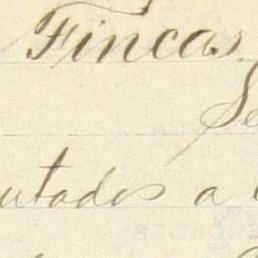 Fincas.
Se
utados a